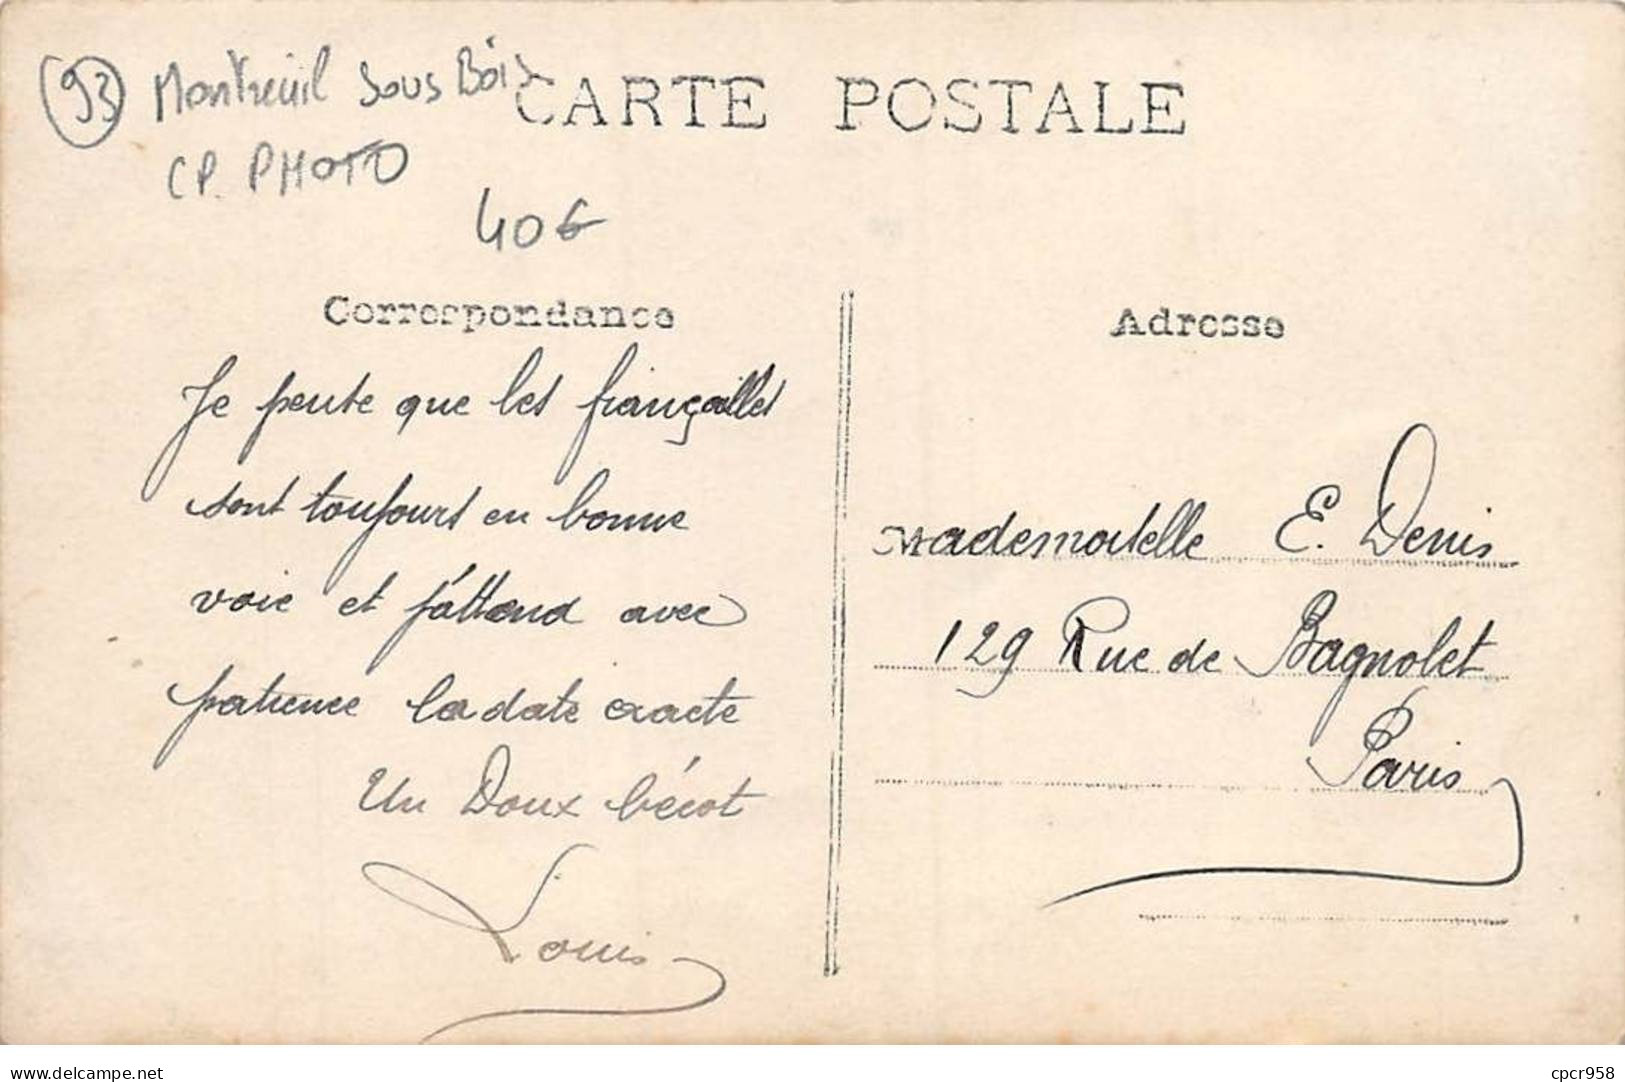 (93) Montreuil sous Bois
CARTE POSTALE
CP. PHOTO
40€
Correspondance
Je pense que les fiançailles
sont toujours en bonne
voie et j'attend avec
patience la date exacte
Un Doux bécot
Louis
Adresse
Mademoiselle E. Denis
129 Rue de Bagnolet
Paris
www.delcampe.net
cpcr958